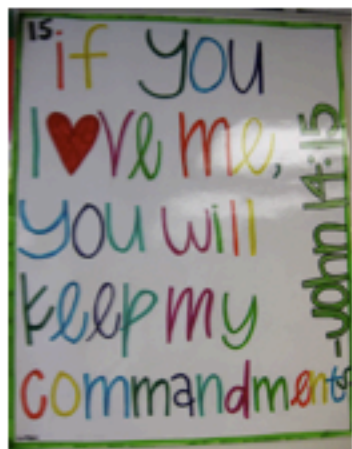 15.
if you
l♥ve me,
you will
keep my
commandments
-John 14:15